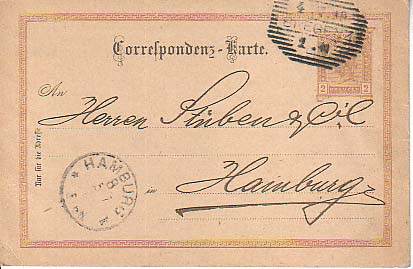 Correspondenz-Karte.
2 2
An
Herren Stüben & Co
Nur für die Adresse
in Hamburg
HAMBURG
8